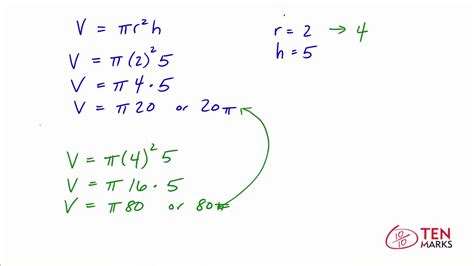 V = πr²h
V = π(2)² 5
V = π 4 · 5
V = π 20 or 20π
r = 2 → 4
h = 5
V = π(4)² 5
V = π 16 · 5
V = π 80 or 80π
10/10 TEN
MARKS